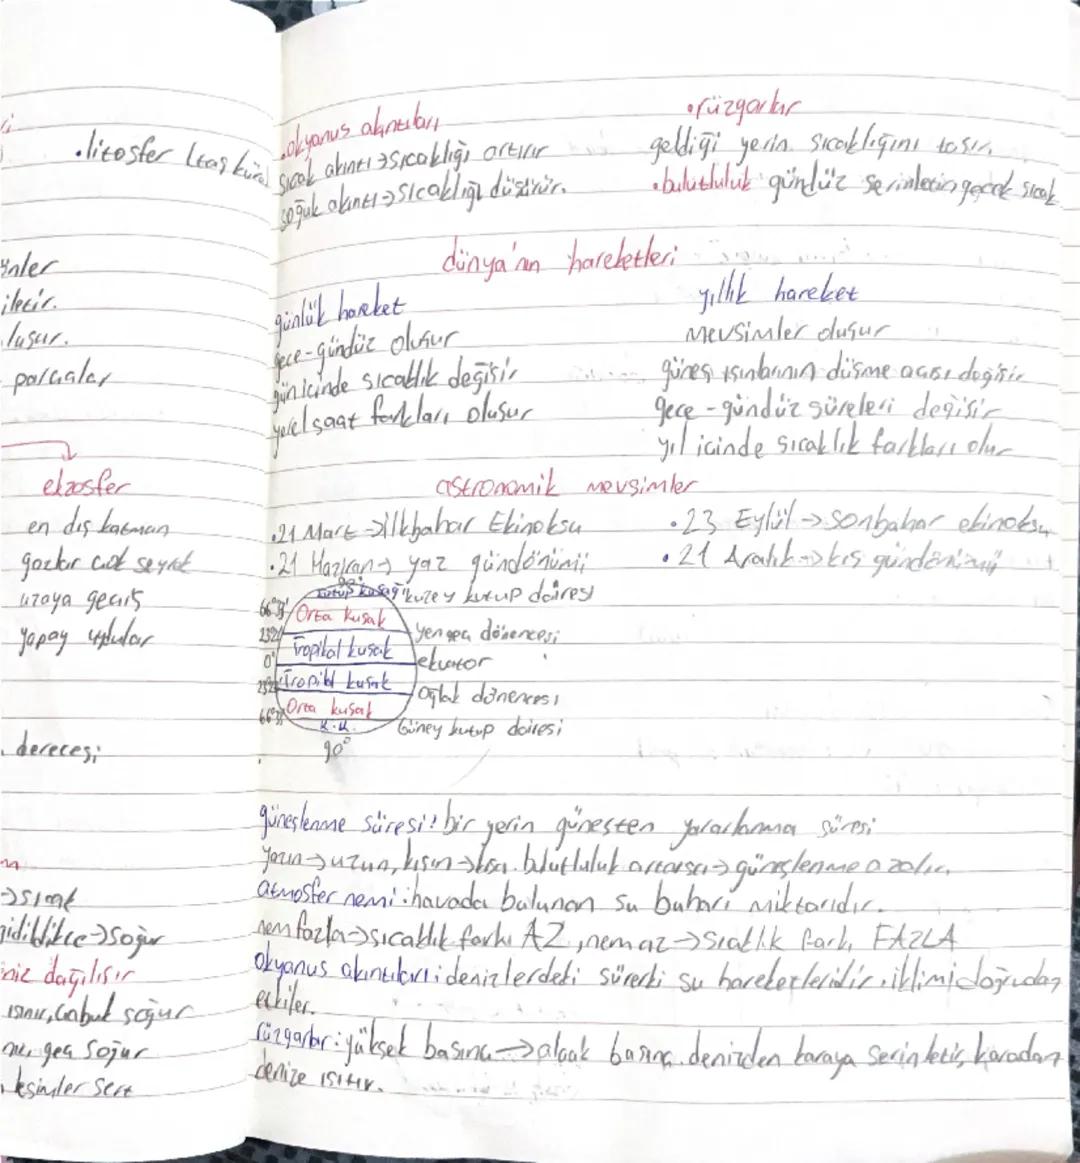 .litosfer (taş küre
ünler
iletir.
luşur.
parçalar
ekzosfer
en dış katman
gazlar çok seyrek
uzaya geçiş
yapay uydular
derecesi
→sıcak
gidildikce→soğur
dağılışır
ısınır, çabuk soğur
geç soğur
kesimler sert
.okyanus akıntıları
sıcak akıntı→sıcaklığı artırır
soğuk akıntı→sıcaklığı düşürür.
.rüzgarlar
geldiği yerin sıcaklığını taşır.
.bulutluluk gündüz serinletir, gece sıcak
dünya'nın hareketleri
günlük hareket
gece-gündüz oluşur
gün içinde sıcaklık değişir
yerel saat farkları oluşur
yıllık hareket
mevsimler oluşur
güneş ışınlarının düşme açısı değişir
gece-gündüz süreleri değişir
yıl içinde sıcaklık farkları olur
astronomik mevsimler
.21 Mart→ilkbahar Ekinoksu
.21 Haziran→ yaz gündönümü
.23 Eylül→sonbahar ekinoksu
.21 Aralık→kış gündönümü
90°
kutup kuşağı kuzey kutup dairesi
66°33' Orta kuşak
yengeç dönencesi
Tropikal kuşak
0° ekvator
Tropikal kuşak
Oğlak dönencesi
Orta kuşak
K.K. Güney kutup dairesi
90°
güneşlenme süresi: bir yerin güneşten yararlanma süresi
yazın→uzun, kışın→kısa. bulutluluk artarsa→güneşlenme azalır.
atmosfer nemi: havada bulunan su buharı miktarıdır.
nem fazla→sıcaklık farkı AZ, nem az→sıcaklık farkı FAZLA
okyanus akıntıları: denizlerdeki sürekli su hareketleridir. iklimi doğrudan
etkiler.
rüzgarlar: yüksek basınç→alçak basınç. denizden karaya serinletir, karadan
denize ısıtır.